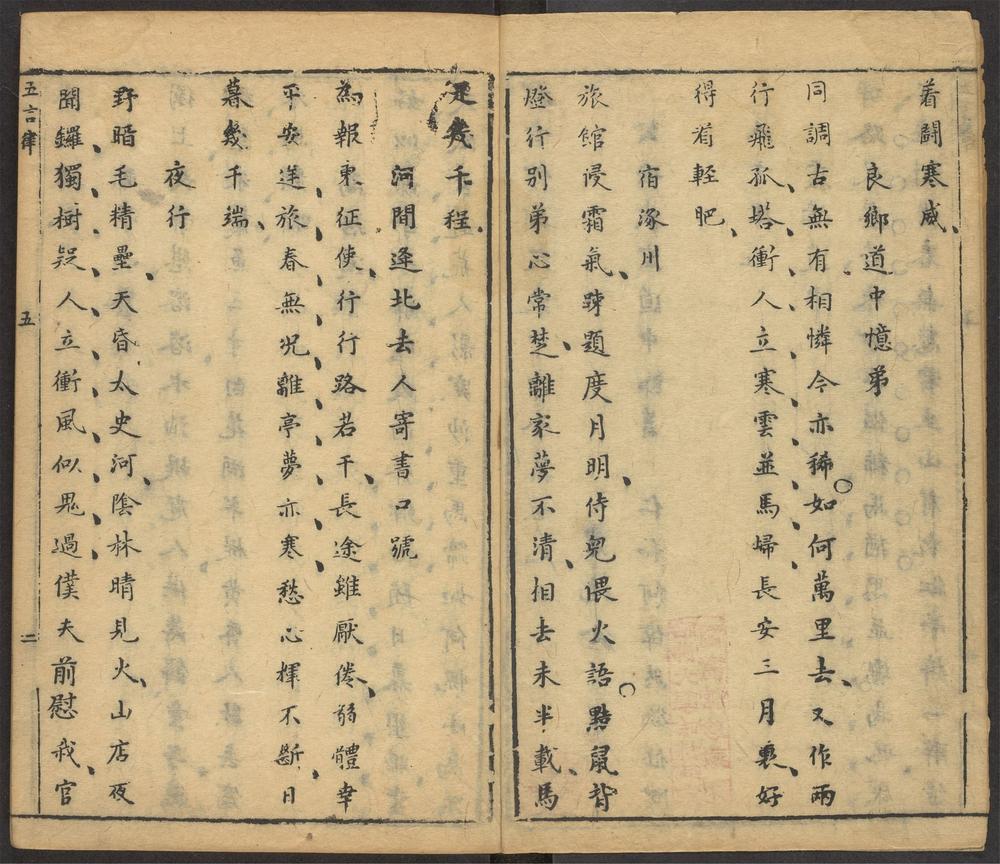 着鬪寒威
良鄉道中憶弟
同調古無有相憐今亦稀如何萬里去又作兩
行飛孤塔衝人立寒雲並馬歸長安三月裏好
得着輕肥
宿涿州
旅館侵霜氣踈題度月明侍兒偎火語點鼠背
燈行别弟心常楚離家夢不清相去未半載馬
足幾千程
河間逢北去人寄書口號
為報東征使行行路若干長途雖厭倦弱體幸
平安逆旅春無况離亭夢亦寒愁心揮不斷日
暮幾千端
夜行
野暗毛精壘天昏太史河陰林晴見火山店夜
聞鑼獨樹疑人立衝風似鬼過僕夫前慰我官
五言律
五
二